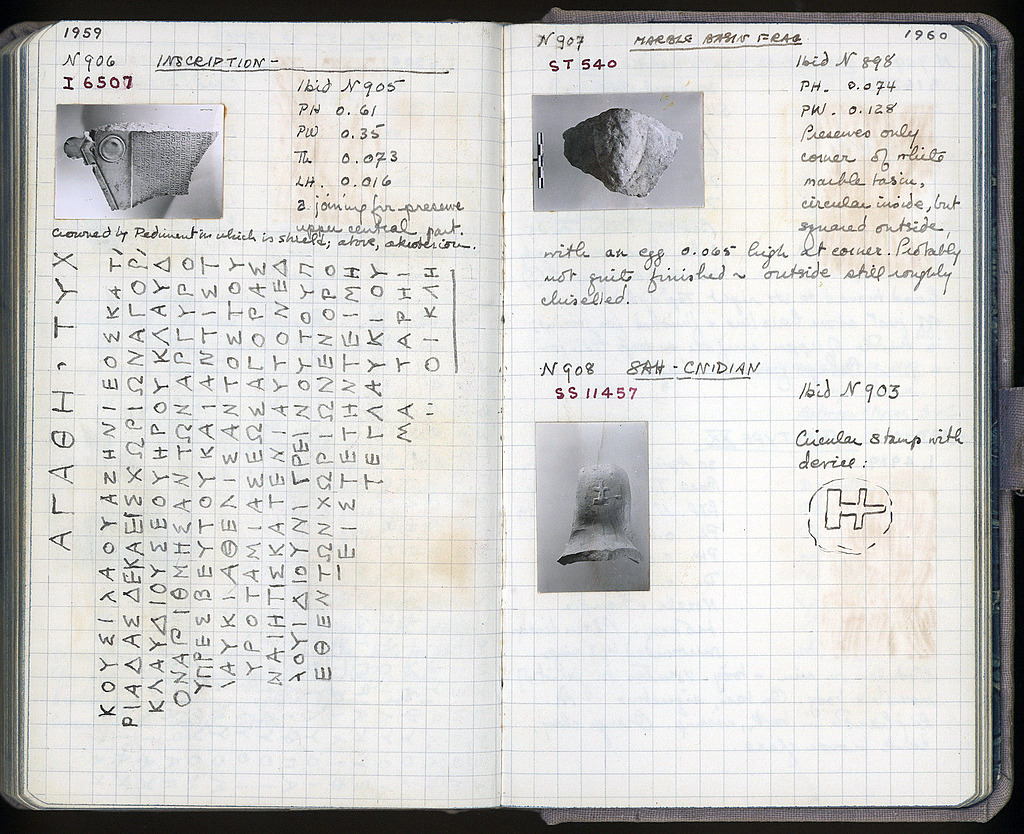 1959
N 906 INSCRIPTION -
I 6507
Ibid N 905
PH 0.61
PW 0.35
Th 0.073
LH. 0.016
2 joining frr preserve
upper central part.
Crowned by Pediment in which is shield; above, akroterion.
ΑΓΑΘΗ, ΤΥΧ
ΚΟΥΣΙΛΑΟΥΑΖΗΝΙΕΟΣΚΑΤ
ΡΙΑΔΑΣΔΕΚΑΕΙΣΧΩΡΙΩΝΑΓΟΡ
ΚΛΑΥΔΙΟΥΣΕΟΥΗΡΟΥΚΛΑΥΔ
ΟΝΑΡΙΘΜΗΣΑΝΤΩΝΑΡΓΥΡΟ
ΥΠΡΕΣΒΕΥΤΟΥΚΑΙΑΝΤΙΣΤ
ΙΑΥΚΙΑΘΕΝΙΣΑΝΤΟΣΤΟΥ
ΥΡΟΤΑΜΙΑΣΕΩΣΑΓΟΡΑΣ
ΝΑΙΗΤΙΣΚΑΤΕΝΙΑΥΤΟΝΕΔ
ΛΟΥΙΔΙΟΥΝΙΓΡΕΙΝΟΥΤΟΥΠ
ΕΘΕΝΤΩΝΧΩΡΙΩΝΕΝΟΡΟ
ΕΙΣΤΕΤΗΝΤΕΙΜΗ
ΤΕΓΛΑΥΚΙΟΥ
ΜΑ ΤΑΡΗΙ
ΟΙΚΛΗ
1960
N 907 MARBLE BASIN FRAG
ST 540
Ibid N 898
PH. 0.074
PW. 0.128
Preserves only
corner of white
marble basin,
circular inside, but
squared outside,
with an egg 0.065 high at corner. Probably
not quite finished ~ outside still roughly
chiselled.
N 908 SAH - CNIDIAN
SS 11457
Ibid N 903
Circular stamp with
device: